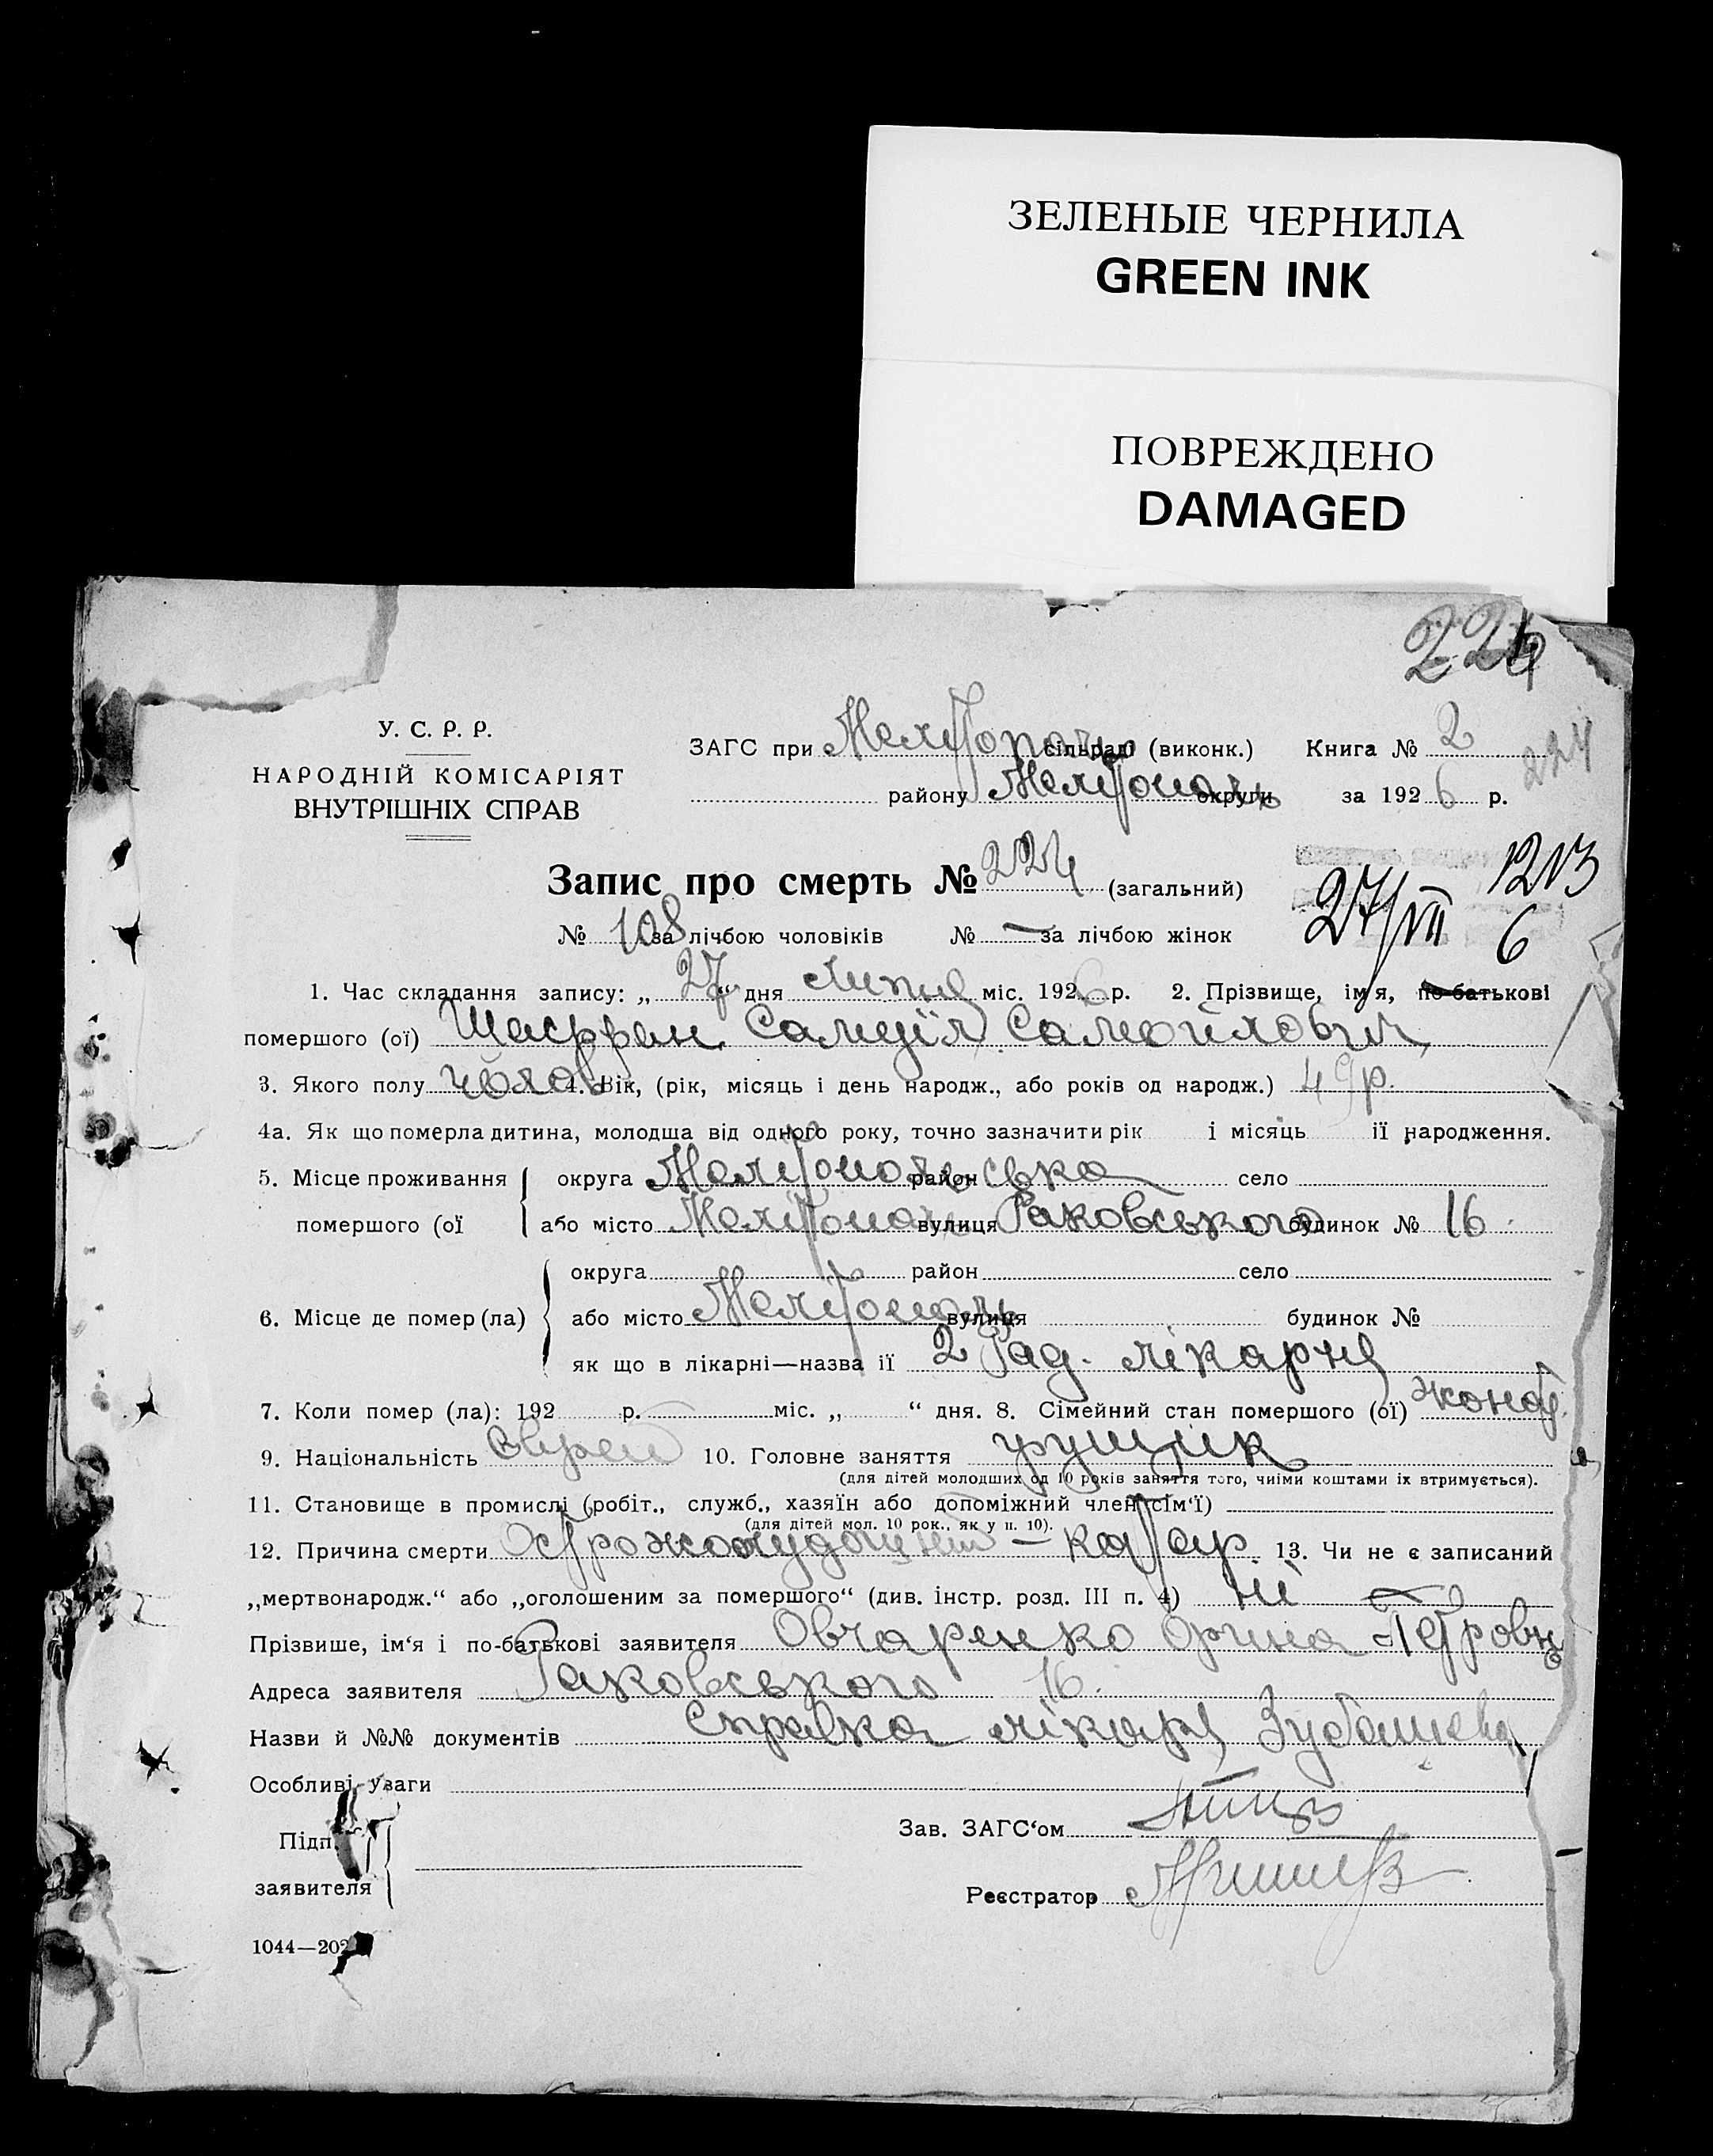 ЗЕЛЕНЫЕ ЧЕРНИЛА
GREEN INK
ПОВРЕЖДЕНО
DAMAGED
224
У. С. Р. Р.
НАРОДНІЙ КОМІСАРІЯТ
ВНУТРІШНІХ СПРАВ
ЗАГС при Мелітополь сільраді (виконк.) Книга № 2
224
району Мелітополь округи за 1926 р.
Запис про смерть № 224 (загальний)
27/VII 1213
6
№ 108 за лічбою чоловіків № — за лічбою жінок
1. Час складання запису: „27“ дня Липня міс. 1926 р. 2. Прізвище, ім'я, по-батькові
помершого (ої) Шаффран Самуїл Самойлович
3. Якого полу чолов 4. Вік, (рік, місяць і день народж., або років од народж.) 49 р.
4а. Як що померла дитина, молодша від одного року, точно зазначити рік і місяць її народження.
5. Місце проживання округа Мелітопольська район село
помершого (ої або місто Мелітополь вулиця Раковського будинок № 16
округа район село
6. Місце де помер (ла) або місто Мелітополь вулиця будинок №
як що в лікарні—назва її 2 Рад. лікарня
7. Коли помер (ла): 192 р. міс. „ “ дня. 8. Сімейний стан помершого (ої) жонат.
9. Національність 10. Головне заняття
(для дітей молодших од 10 років заняття того, чиїми коштами їх втримується).
11. Становище в промислі (робіт., служб., хазяїн або допоміжний член сім'ї)
(для дітей мол. 10 рок., як у п. 10).
12. Причина смерти — катар. 13. Чи не є записаний
„мертвонародж.“ або „оголошеним за помершого“ (див. інстр. розд. III п. 4) ні
Прізвише, ім'я і по-батькові заявителя Овчаренко Орина Петровн
Адреса заявителя Раковського 16.
Назви й №№ документів Справка лікаря
Особливі уваги
Підп.
заявителя
Зав. ЗАГС'ом
Реєстратор
1044—202